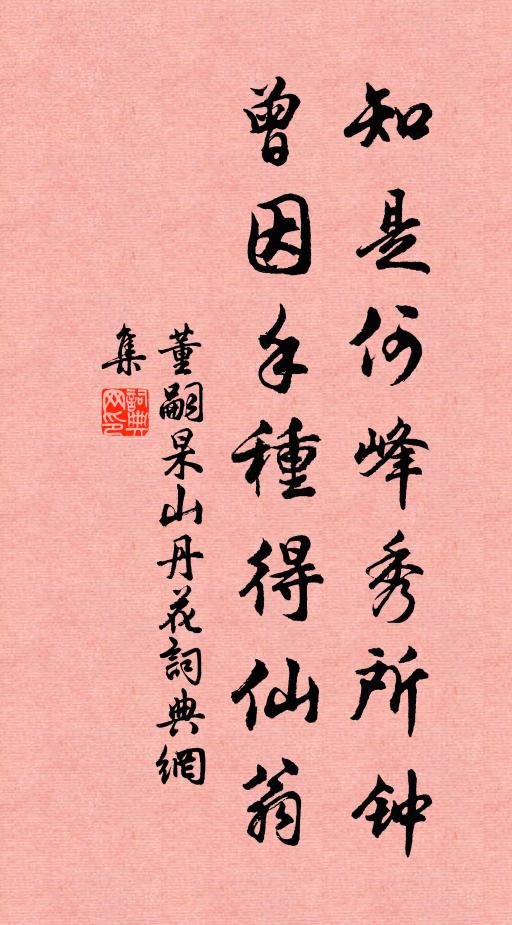 知是何峰秀所钟
曾因手種得仙翁
董嗣杲山丹花詞典網
集
詞典
网印